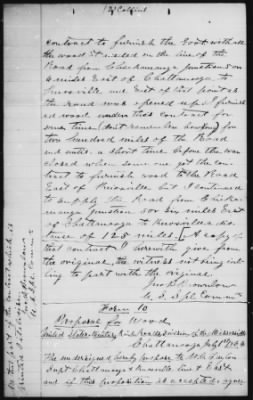 contract to furnish the Govt with all
the wood it needed on the line of the
Road from Chickamauga Junction 8 or
6 miles East of Chattanooga, to
Knoxville and East of that point as
the road was opened up. I furnish
ed wood under this contract for
some time (don't remember how long) for
two hundred miles of the Road
and until a short time before the war
closed when some one got the con
tract to furnish wood to the Road
East of Knoxville but I continued
to supply the Road from Chicka
mauga Junction 8 or six miles East
of Chattanooga to Knoxville a dis
tance of 125 miles. A copy of
that contract I herewith give from
the original, the witness not being wil
ling to part with the original.
U.S. Spl. Commr
Form 10
Proposal for Wood
United States Military Rail Roads Division of the Mississippi
Chattanooga July 1st 1864
The undersigned hereby propose to
Supt Chattanooga & Knoxville line
and if this proposition is accepted, agree